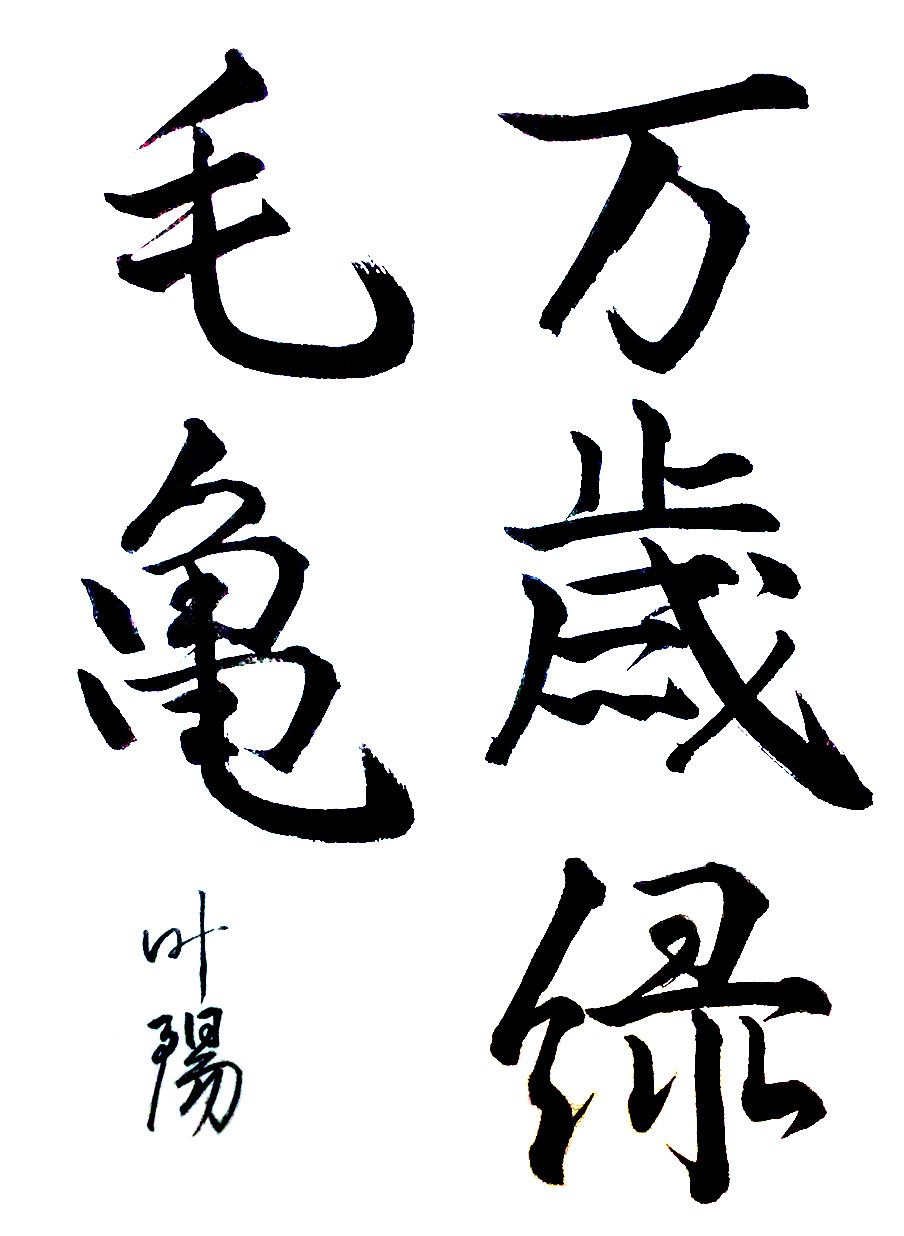 万歳緑
毛亀
叶陽